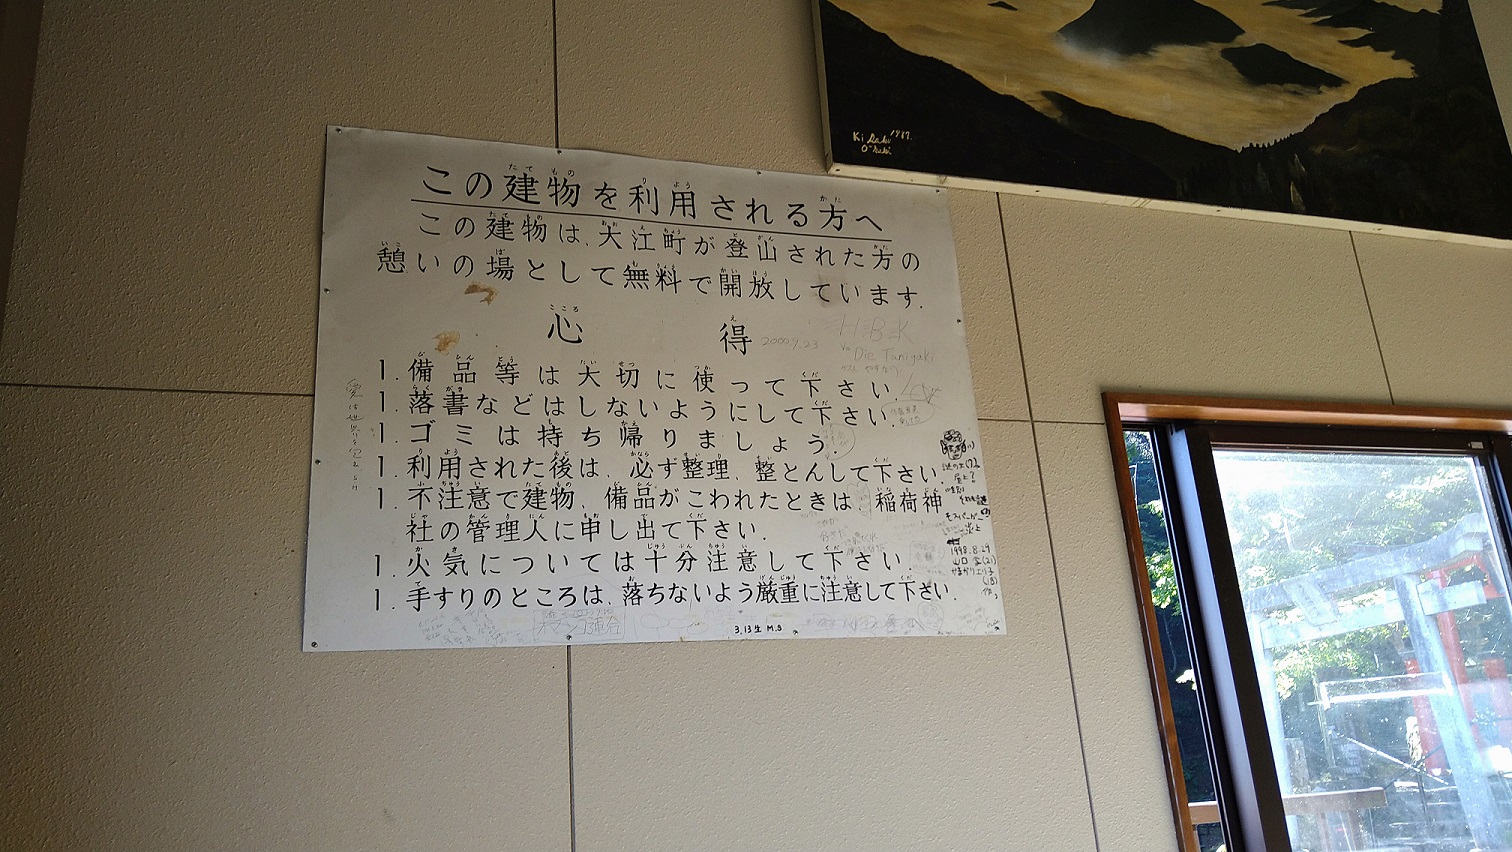 この建物を利用される方へ
この建物は、大江町が登山された方の
憩いの場として無料で開放しています.
心得
1. 備品等は大切に使って下さい.
1. 落書などはしないようにして下さい.
1. ゴミは持ち帰りましょう.
1. 利用された後は、必ず整理、整とんして下さい.
1. 不注意で建物、備品がこわれたときは、稲荷神
社の管理人に申し出て下さい.
1. 火気については十分注意して下さい.
1. 手すりのところは、落ちないよう厳重に注意して下さい.
H·B·K
Die Tanigaki
1998.8.29
3.13生 M.S
1987.